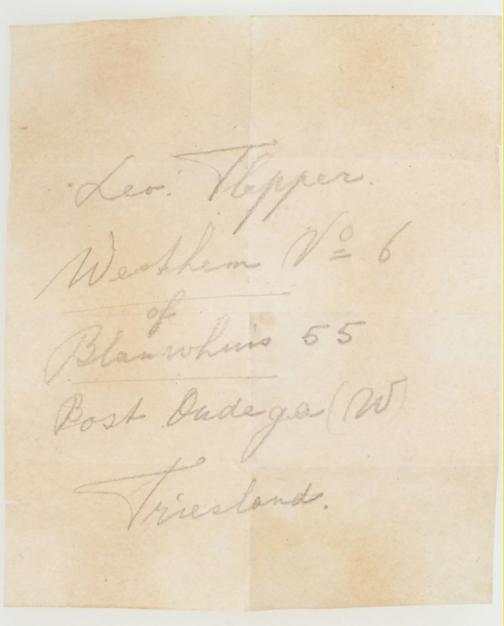 Leo. Flapper.
Westhem Nº 6
of
Blauwhuis 55
Post Oudega (W)
Friesland.